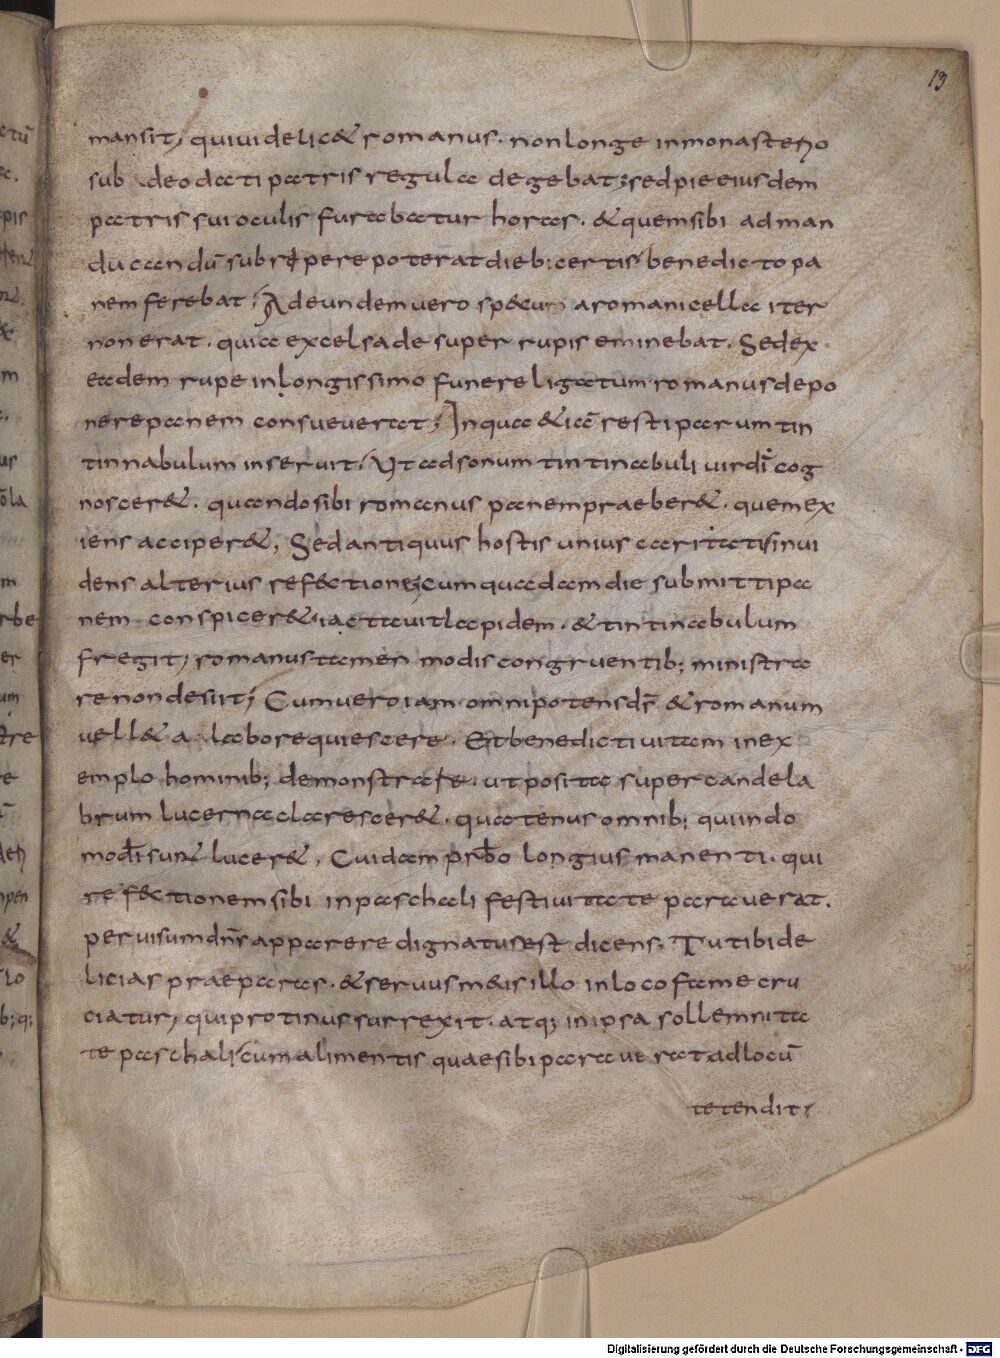 13
mansit, qui uidelic& romanus. non longe in monasterio
sub deodati patris regula degebat; sed pie eiusdem
patris sui oculis furabatur horas. & quem sibi ad man
ducandū subripere poterat dieb; certis benedicto pa
nem ferebat; Ad eundem uero specum a romani cella iter
non erat. quia excelsa desuper rupis eminebat. Sed ex
eadem rupe in longissimo funere ligatum romanus depo
nere panem consueuerat; In qua & iā resti paruum tin
tinnabulum inseruit; Ut ad sonum tintinabuli uir dī cog
noscer&. quando sibi romanus panem praeber&. quem ex
iens acciper&, Sed antiquus hostis unius caritatis inui
dens alterius refectione; cum quadam die submitti pa
nem conspicer&, iactauit lapidem. & tintinabulum
fregit, romanus tamen modis congruentib; ministra
re non desiit; Cum uero iam omnipotens ds & romanum
uell& a labore quiescere. Et benedicti uitam in ex
emplo hominib; demonstrare. ut posita super candela
brum lucerna claresceret&. quatenus omnib; qui in do
mo dī sunt lucer&, Cuidam prbo longius manenti. qui
refectionem sibi in paschali festiuitate parauerat.
per uisum dns apparere dignatus est dicens, Tu tibi de
licias praeparas. & seruus meus illo in loco fame cru
ciatur, qui protinus surrexit. atq; in ipsa sollemnita
te paschali cum alimentis quae sibi parauerat ad locū
tetendit;
Digitalisierung gefördert durch die Deutsche Forschungsgemeinschaft - DFG